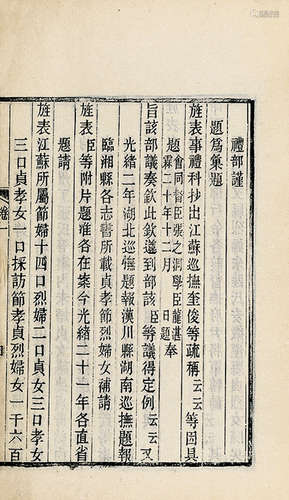 禮部謹
題爲彙題
旌表事禮科抄出江蘇巡撫奎俊等疏稱云云等因具
題會同督臣張之洞學臣龍湛 霖二十年十二月 日題奉
旨該部議奏欽此欽遵到部該 臣等議得定例云云又
光緒二年湖北巡撫題報漢川縣湖南巡撫題報
臨湘縣各志書所載貞孝節烈婦女補請
旌表 臣等附片題准各在案今光緒二十一年各直省
題請
旌表江蘇所屬節婦十四口烈婦二口貞女三口孝女
三口貞孝女一口採訪節孝貞烈婦女一千六百
卷一